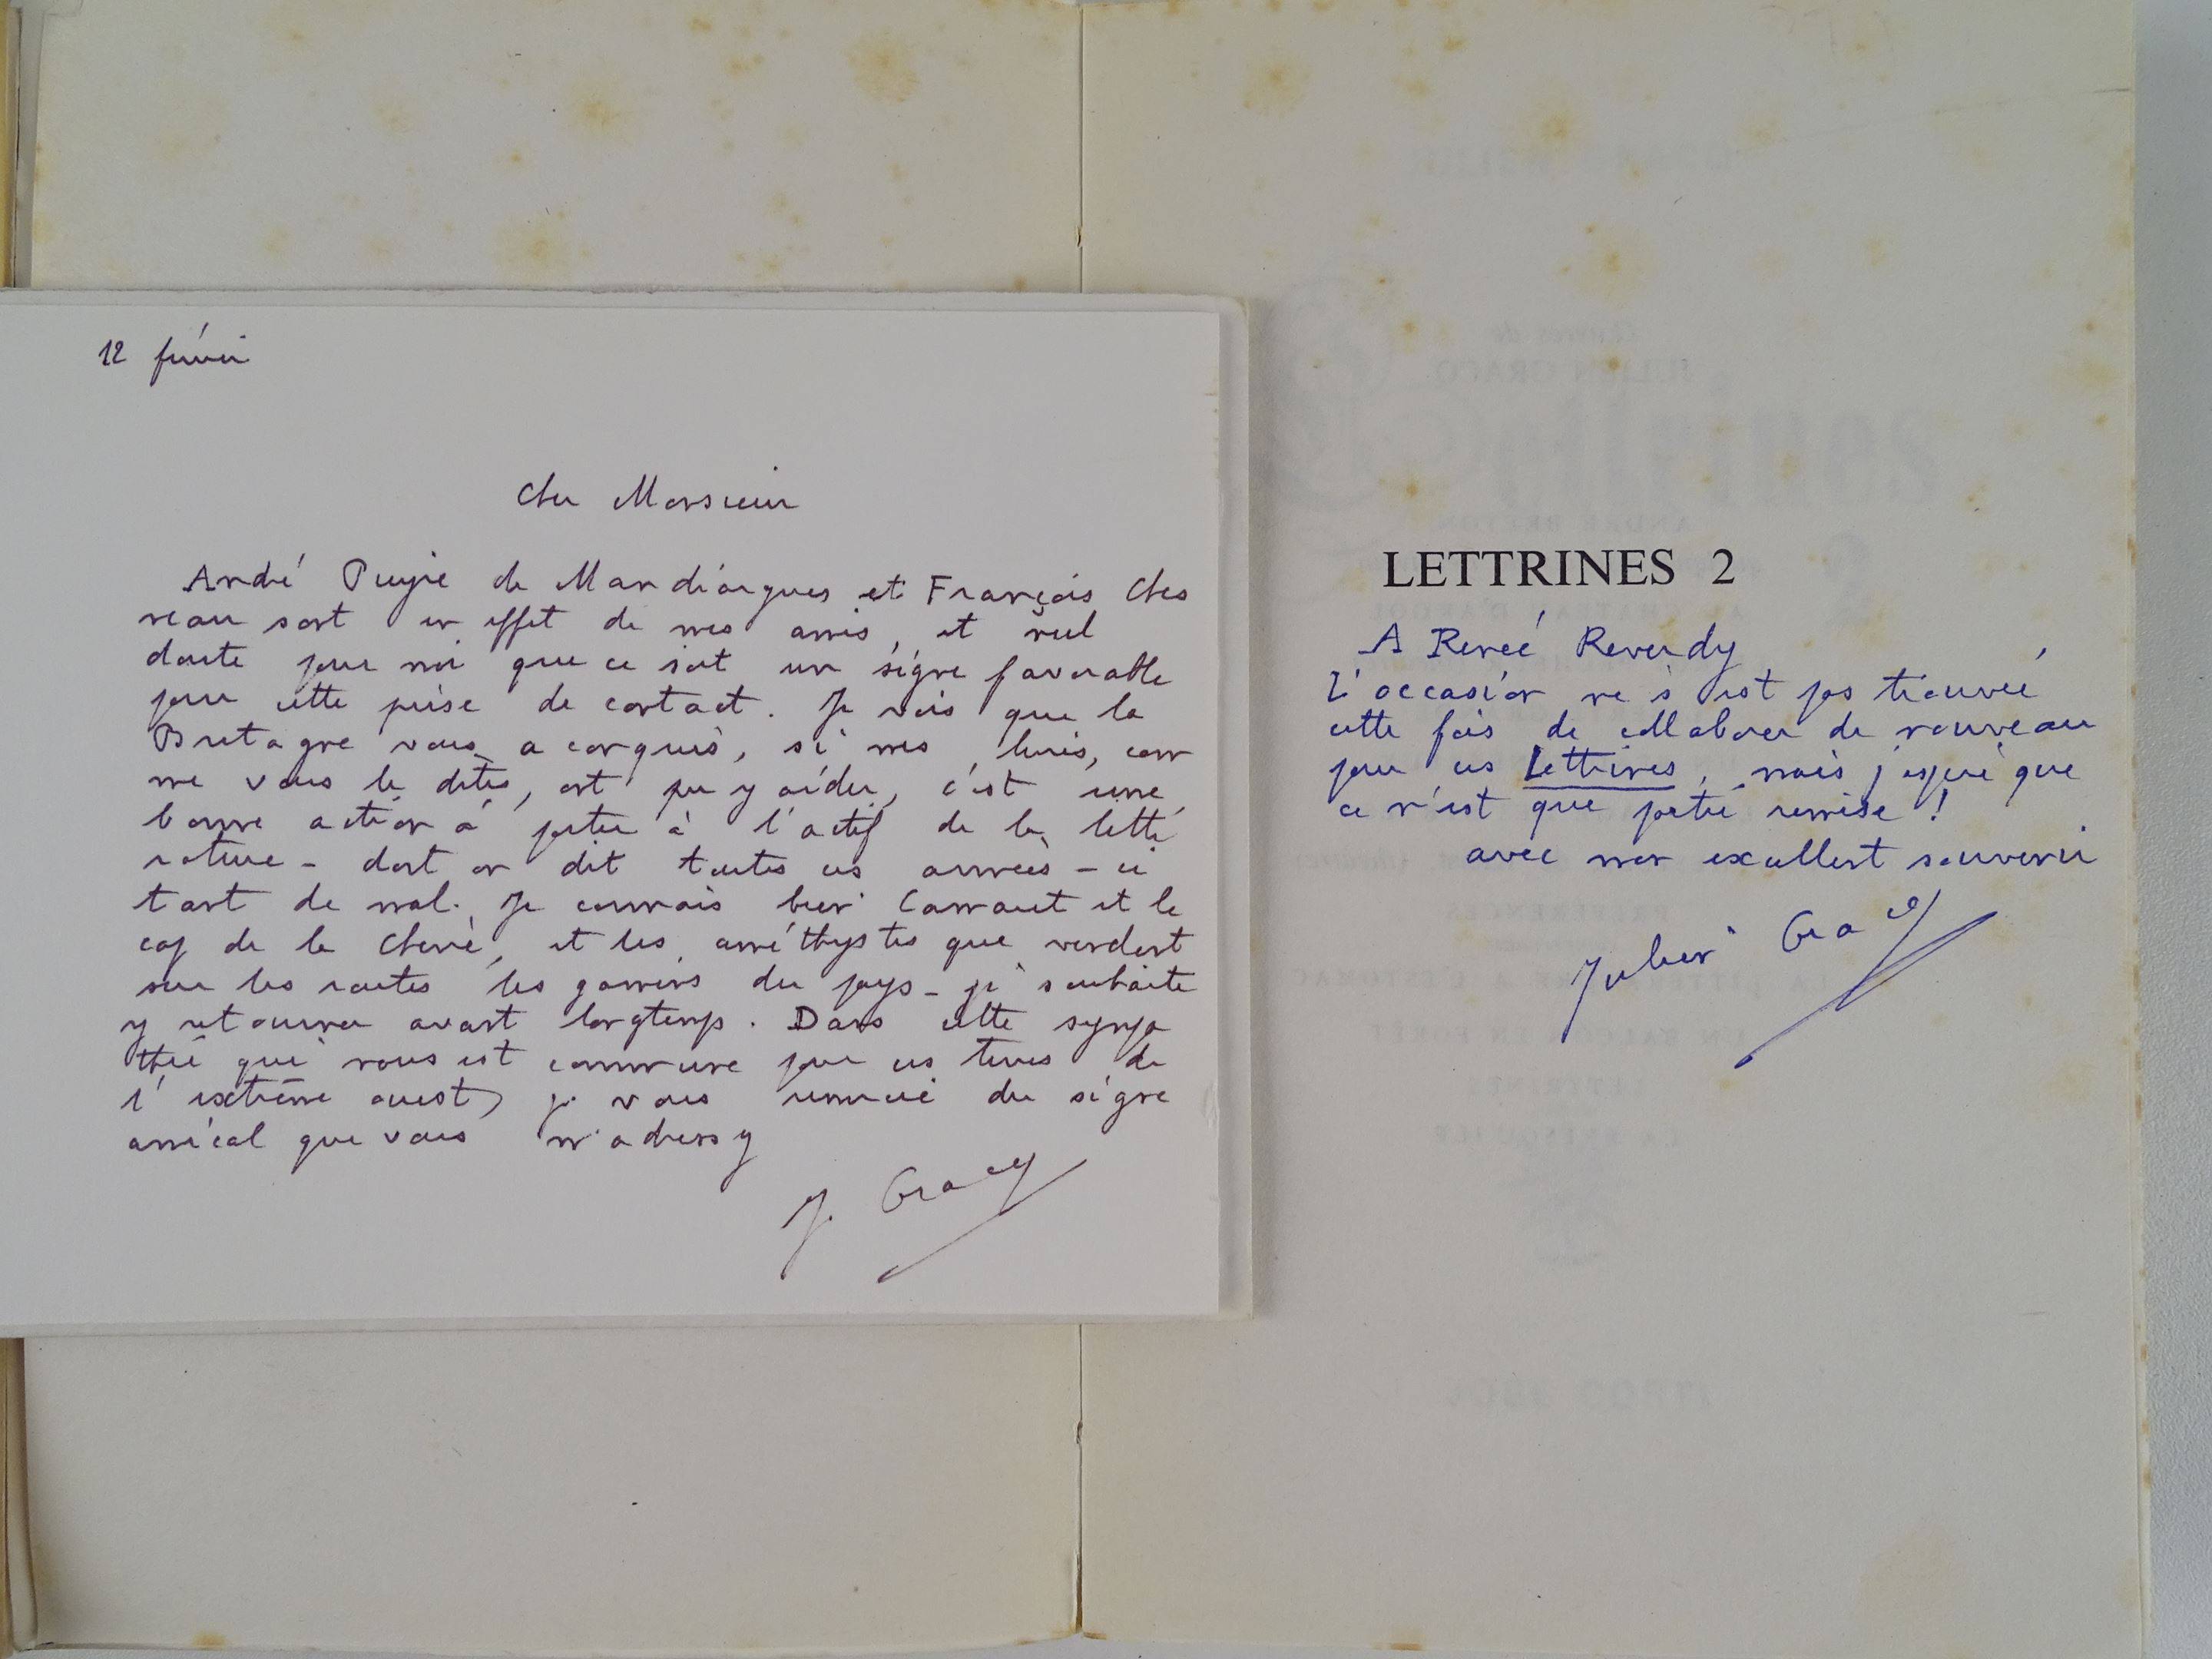 12 février
Cher Monsieur
André Pieyre de Mandiargues et François Ches
neau sont en effet de mes amis, et nul
doute pour moi que ce soit un signe favorable
pour cette prise de contact. Je vois que la
Bretagne vous a conquis, si mes livres, com
me vous le dites, ont pu y aider, c'est une
bonne action à porter à l'actif de la litté
rature - dont on dit toutes ces années-ci
tant de mal. Je connais bien Camaret et le
cap de la Chèvre, et les améthystes que vendent
sur les routes les gamins du pays - je souhaite
y retourner avant longtemps. Dans cette sympa
thie qui nous est commune pour ces terres de
l'extrême ouest, je vous remercie du signe
amical que vous m'adressez
J. Gracq
LETTRINES 2
A Renée Reverdy
L'occasion ne s'est pas trouvée
cette fois de collaborer de nouveau
pour ces Lettrines, mais j'espère que
ce n'est que partie remise !
avec mon excellent souvenir
Julien Gracq